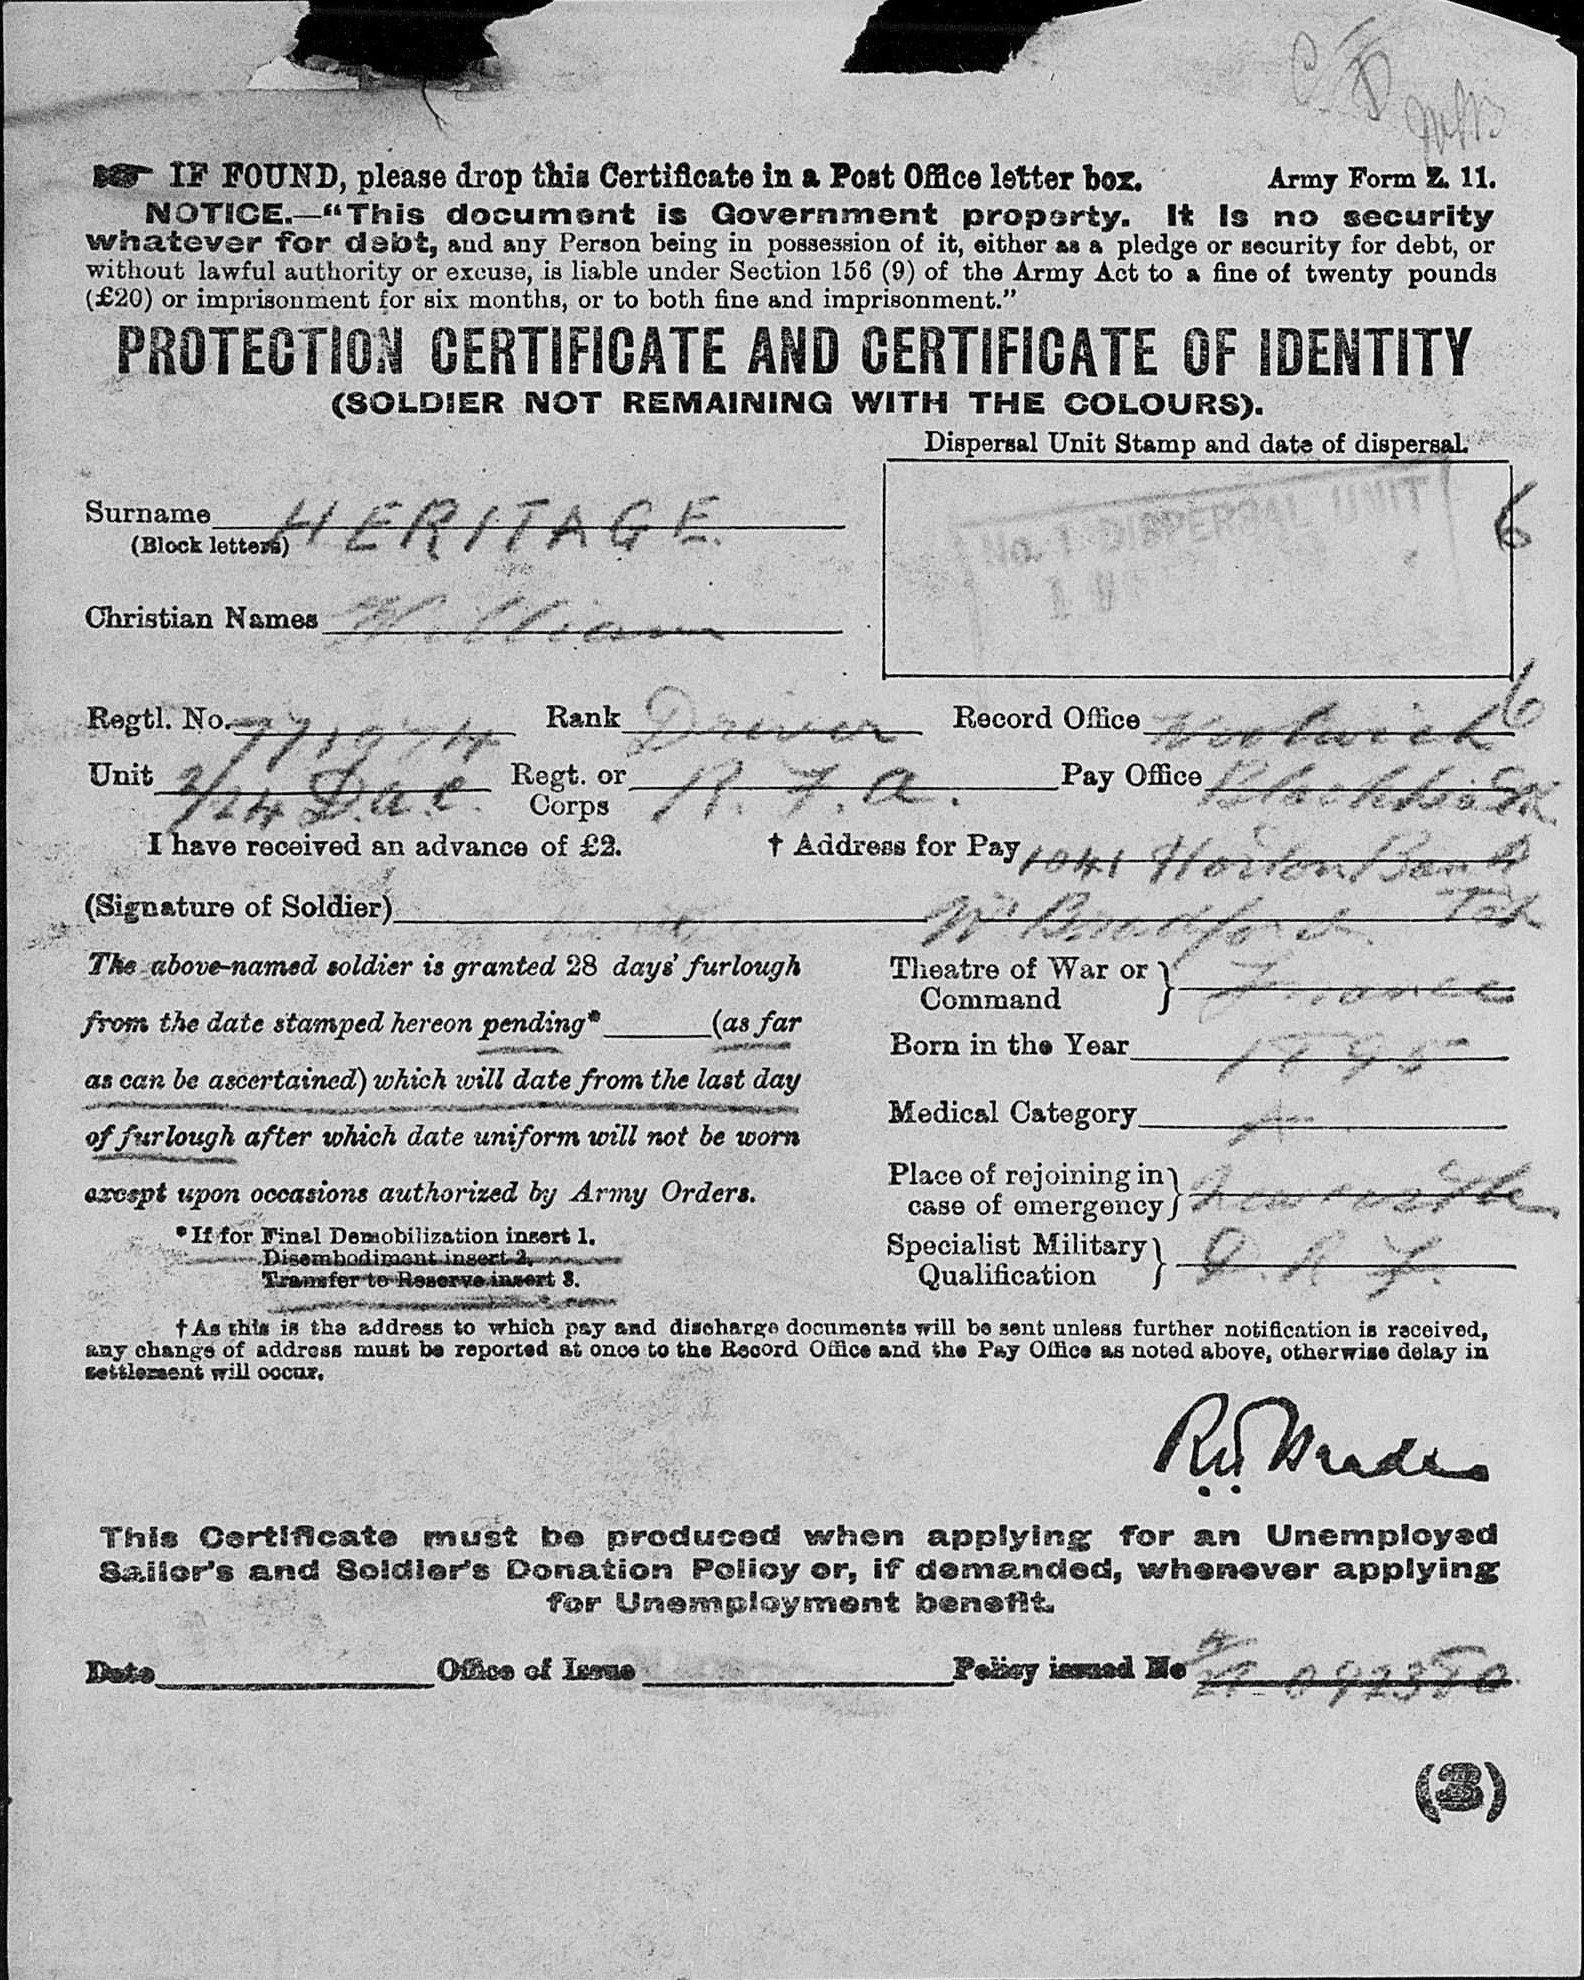 IF FOUND, please drop this Certificate in a Post Office letter box. Army Form Z. 11.
NOTICE.—“This document is Government property. It is no security
whatever for debt, and any Person being in possession of it, either as a pledge or security for debt, or
without lawful authority or excuse, is liable under Section 156 (9) of the Army Act to a fine of twenty pounds
(£20) or imprisonment for six months, or to both fine and imprisonment.”
PROTECTION CERTIFICATE AND CERTIFICATE OF IDENTITY
(SOLDIER NOT REMAINING WITH THE COLOURS).
Dispersal Unit Stamp and date of dispersal.
No. 1 DISPERSAL UNIT
6
Surname HERITAGE.
(Block letters)
Christian Names William
Regtl. No. 771974 Rank Driver Record Office Woolwich 6
Unit 2/24 D.A.C. Regt. or Corps R. F. A. Pay Office Blackheath
I have received an advance of £2. † Address for Pay 1041 Horton Bank
(Signature of Soldier) Nr Bradford.
The above-named soldier is granted 28 days' furlough
from the date stamped hereon pending* (as far
as can be ascertained) which will date from the last day
of furlough after which date uniform will not be worn
except upon occasions authorized by Army Orders.
*If for Final Demobilization insert 1.
Disembodiment insert 2.
Transfer to Reserve insert 3.
Theatre of War or Command } France
Born in the Year 1895
Medical Category A
Place of rejoining in case of emergency } Newcastle
Specialist Military Qualification }
†As this is the address to which pay and discharge documents will be sent unless further notification is received,
any change of address must be reported at once to the Record Office and the Pay Office as noted above, otherwise delay in
settlement will occur.
This Certificate must be produced when applying for an Unemployed
Sailor's and Soldier's Donation Policy or, if demanded, whenever applying
for Unemployment benefit.
Date Office of Issue Policy issued No
(3)